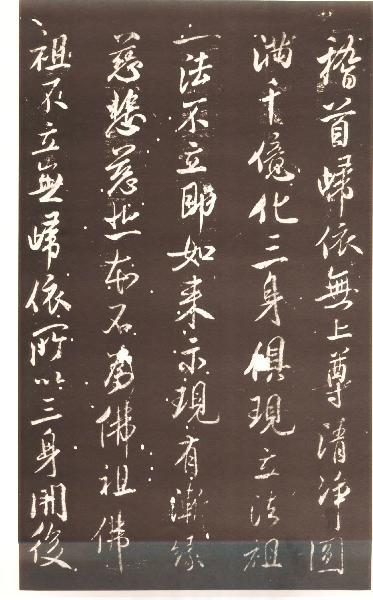 稽首歸依無上尊清淨圓
滿千億化三身俱現立法祖
一法不立即如來示現有漸緣
慈悲若此本不為佛祖佛
祖不立無歸依所以三身開後